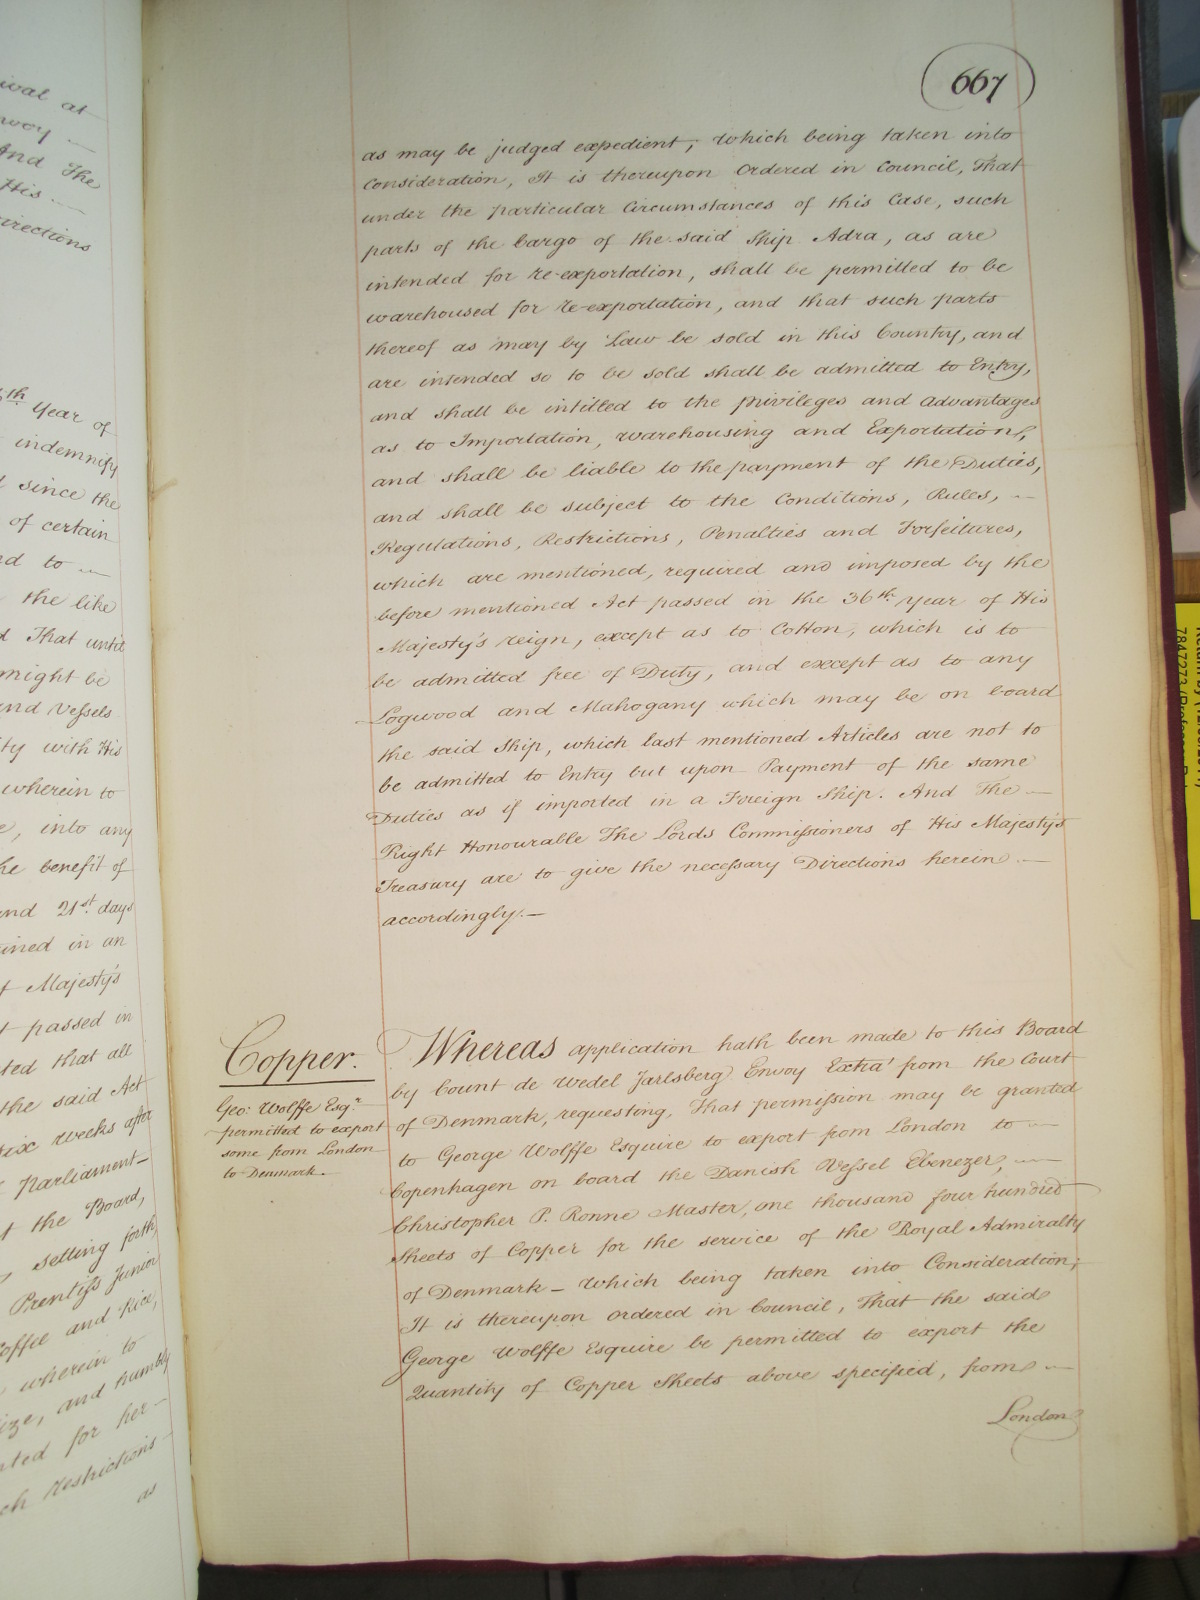 ival at
nvoy —
And The
His —
irections
th Year of
indemnify
since the
of certain
d to —
the like
d That until
might be
and Vessels
ty with His
wherein to
e, into any
he benefit of
and 21st. days
ined in an
t Majesty's
t passed in
ted that all
the said Act
six weeks after
Parliament—
t the Board,
setting forth,
Prentiss Junior
Coffee and Rice,
wherein to
ize, and humbly
nted for her—
ch Restrictions
as
667
as may be judged expedient; Which being taken into
Consideration, It is thereupon Ordered in Council, That
under the particular Circumstances of this Case, such
parts of the Cargo of the said Ship Adra, as are
intended for re-exportation, shall be permitted to be
warehoused for re-exportation, and that such parts
thereof as may by Law be sold in this Country, and
are intended so to be sold shall be admitted to Entry,
and shall be intitled to the privileges and advantages
as to Importation, warehousing and Exportation,
and shall be liable to the payment of the Duties,
and shall be subject to the Conditions, Rules, —
Regulations, Restrictions, Penalties and Forfeitures,
which are mentioned, required and imposed by the
before mentioned Act passed in the 36th. year of His
Majesty's reign, except as to Cotton, which is to
be admitted free of Duty, and except as to any
Logwood and Mahogany which may be on board
the said Ship, which last mentioned Articles are not to
be admitted to Entry but upon Payment of the same
Duties as if imported in a Foreign Ship. And The —
Right Honourable The Lords Commissioners of His Majesty's
Treasury are to give the necessary Directions herein —
accordingly.—
Copper.
Geo: Wolffe Esqr.
permitted to export
some from London
to Denmark.—
Whereas application hath been made to this Board
by Count de Wedel Jarlsberg Envoy Extra' from the Court
of Denmark, requesting, That permission may be granted
to George Wolffe Esquire to export from London to —
Copenhagen on board the Danish Vessel Ebenezer, —
Christopher P. Ronne Master, one thousand four hundred
Sheets of Copper for the service of the Royal Admiralty
of Denmark — Which being taken into Consideration;
It is thereupon ordered in Council, That the said
George Wolffe Esquire be permitted to export the
Quantity of Copper Sheets above specified, from —
London